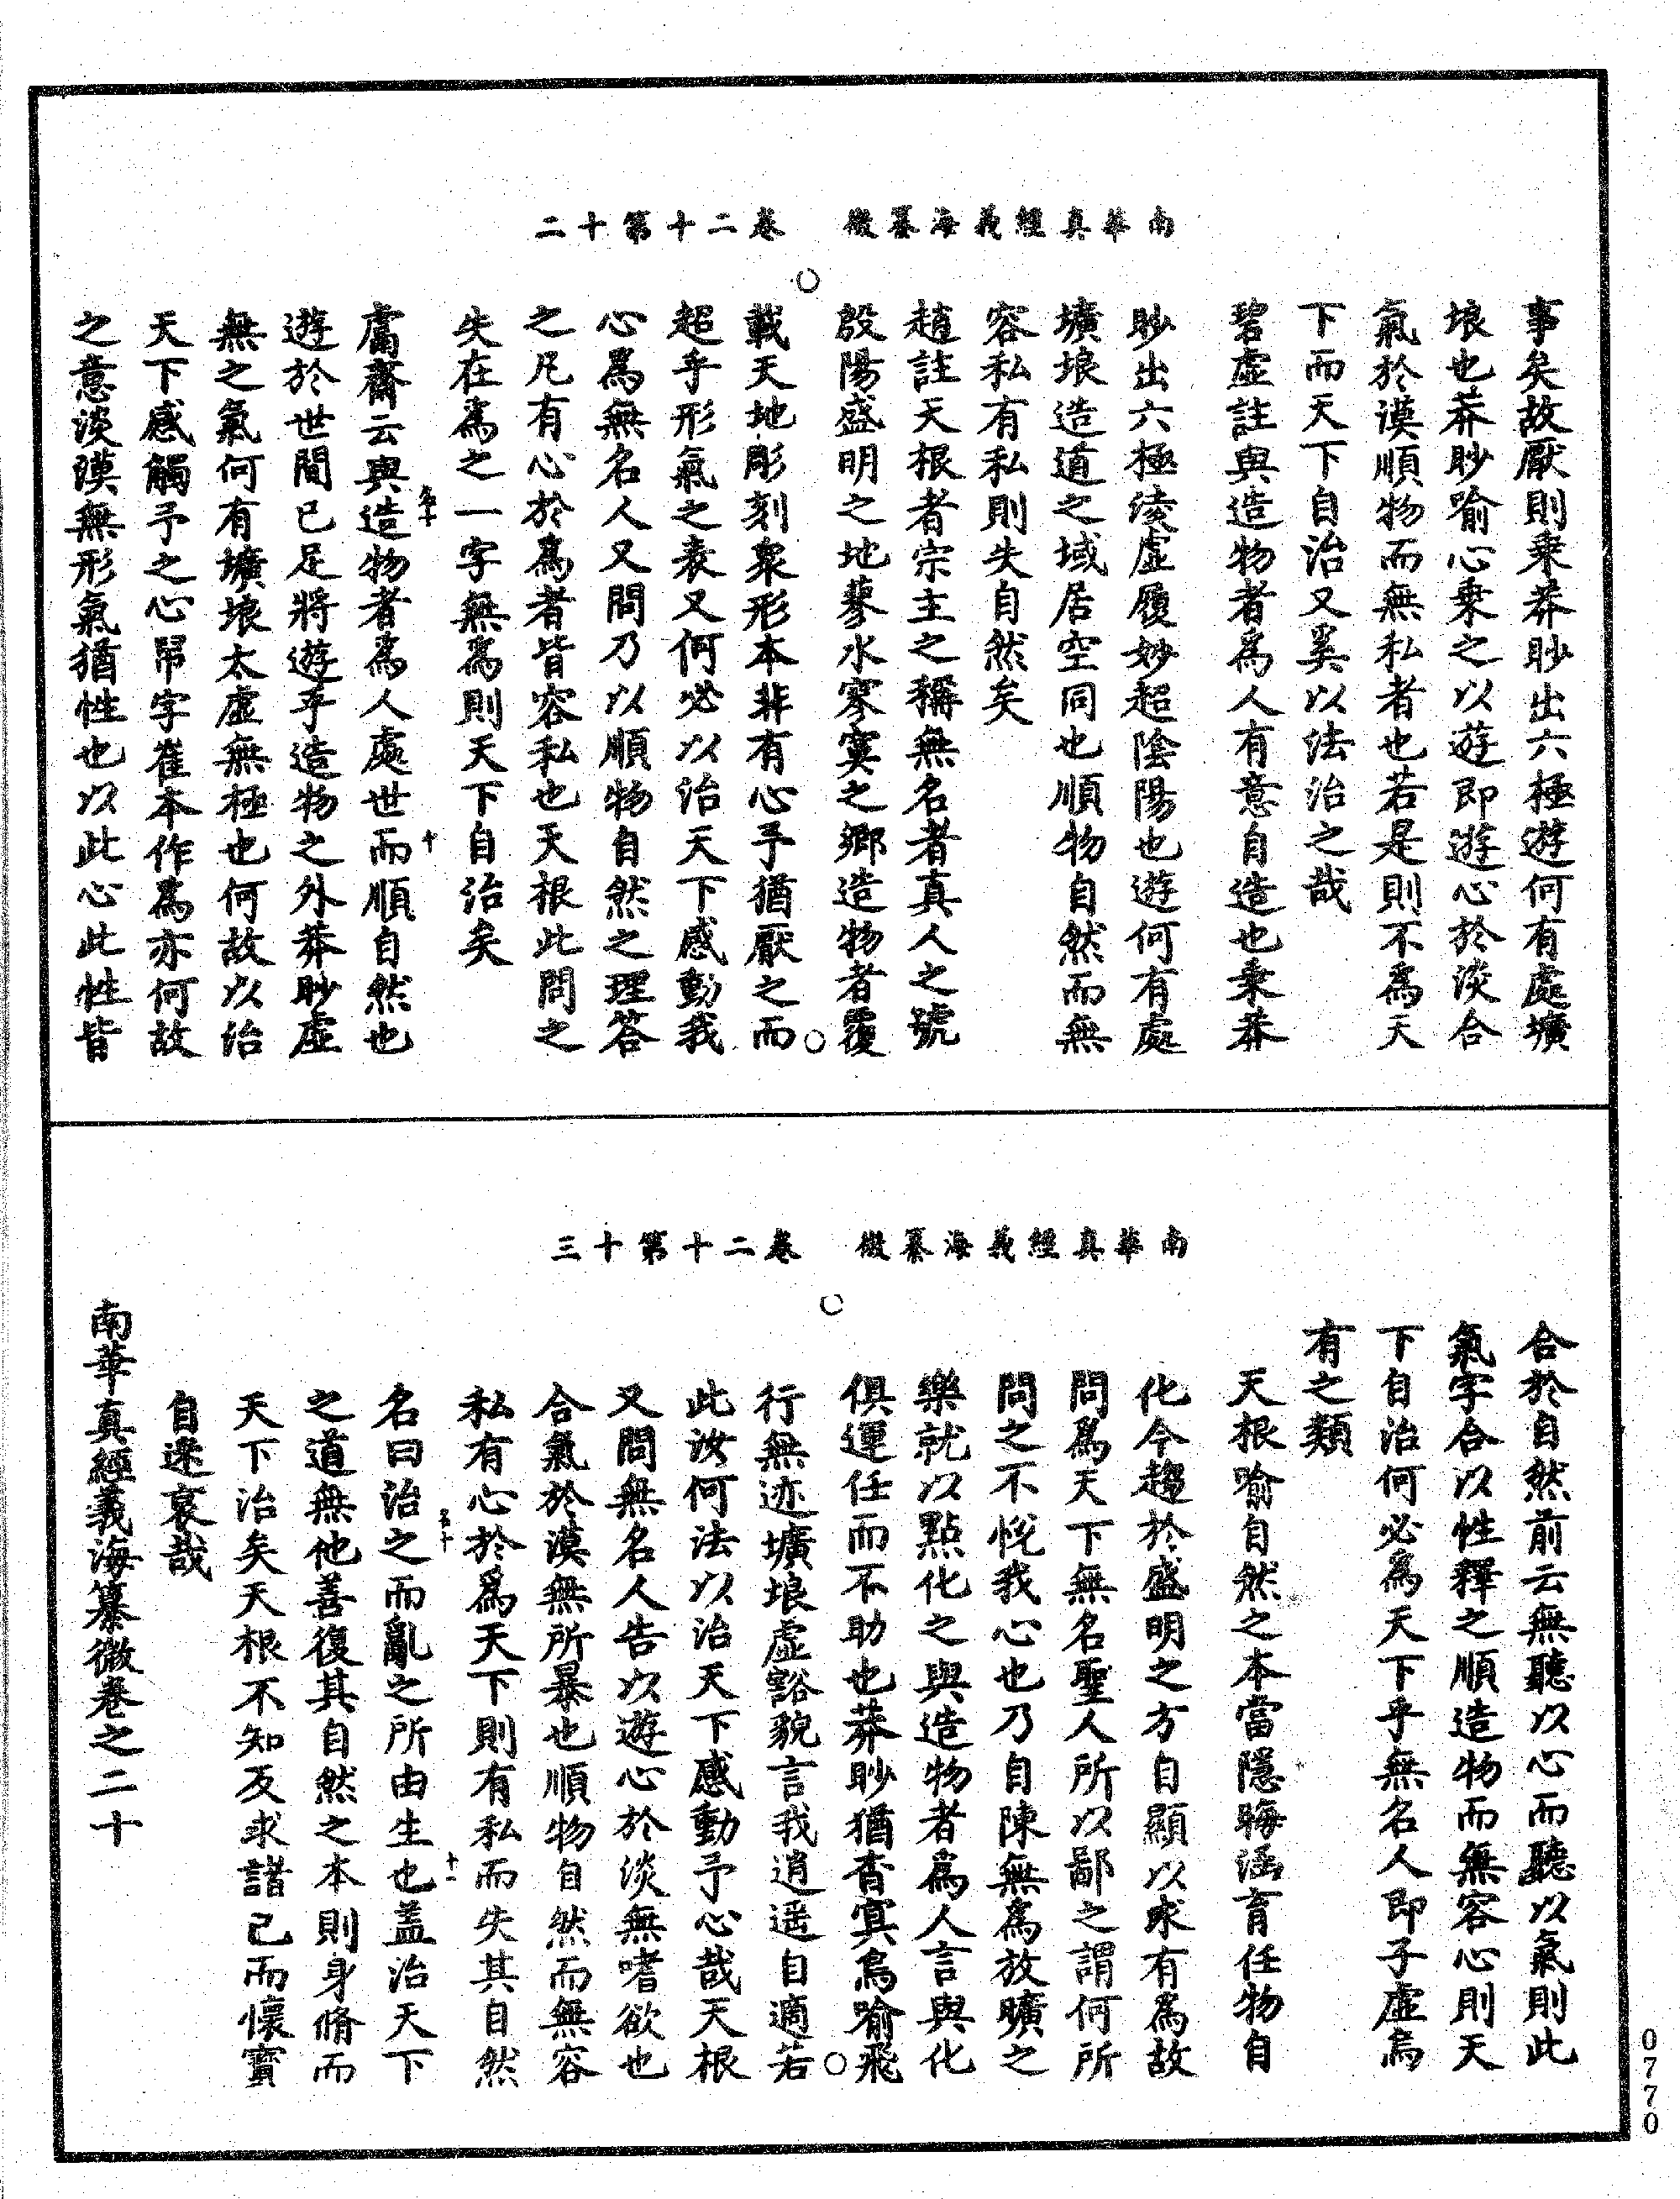 南華真經義海纂微　卷二十第十二
事矣故厭則乘莽眇出六極遊何有處壙
埌也莽眇喻心乘之以遊即遊心於淡合
氣於漠順物而無私者也若是則不為天
下而天下自治又奚以法治之哉
碧虛註與造物者為人有意自造也乘莽
眇出六極淩虛履妙超陰陽也遊何有處
壙埌造道之域居空同也順物自然而無
容私有私則失自然矣
趙註天根者宗主之稱無名者真人之號
殷陽盛明之地蓼水寥寞之鄉造物者覆
載天地彫刻衆形本非有心予猶厭之而
超乎形氣之表又何必以治天下感動我
心為無名人又問乃以順物自然之理答
之凡有心於為者皆容私也天根此問之
失在為之一字無為則天下自治矣
鬳齋云與造物者為人處世而順自然也
遊於世間已足將遊乎造物之外莽眇虛
無之氣何有壙埌太虛無極也何故以治
天下感觸予之心帠字崔本作為亦何故
之意淡漠無形氣猶性也以此心此性皆
南華真經義海纂微　卷二十第十三
合於自然前云無聽以心而聽以氣則此
氣字合以性釋之順造物而無容心則天
下自治何必為天下乎無名人即子虛烏
有之類
天根喻自然之本當隱晦涵育任物自
化今趨於盛明之方自顯以求有為故
問為天下無名聖人所以鄙之謂何所
問之不悅我心也乃自陳無為放曠之
樂就以點化之與造物者為人言與化
俱運任而不助也莽眇猶杳冥鳥喻飛
行無迹壙埌虛豁貌言我逍遥自適若
此汝何法以治天下感動予心哉天根
又問無名人告以遊心於淡無嗜欲也
合氣於漠無所暴也順物自然而無容
私有心於為天下則有私而失其自然
名曰治之而亂之所由生也蓋治天下
之道無他善復其自然之本則身脩而
天下治矣天根不知反求諸己而懷寶
自迷哀哉
南華真經義海纂微卷之二十
0770